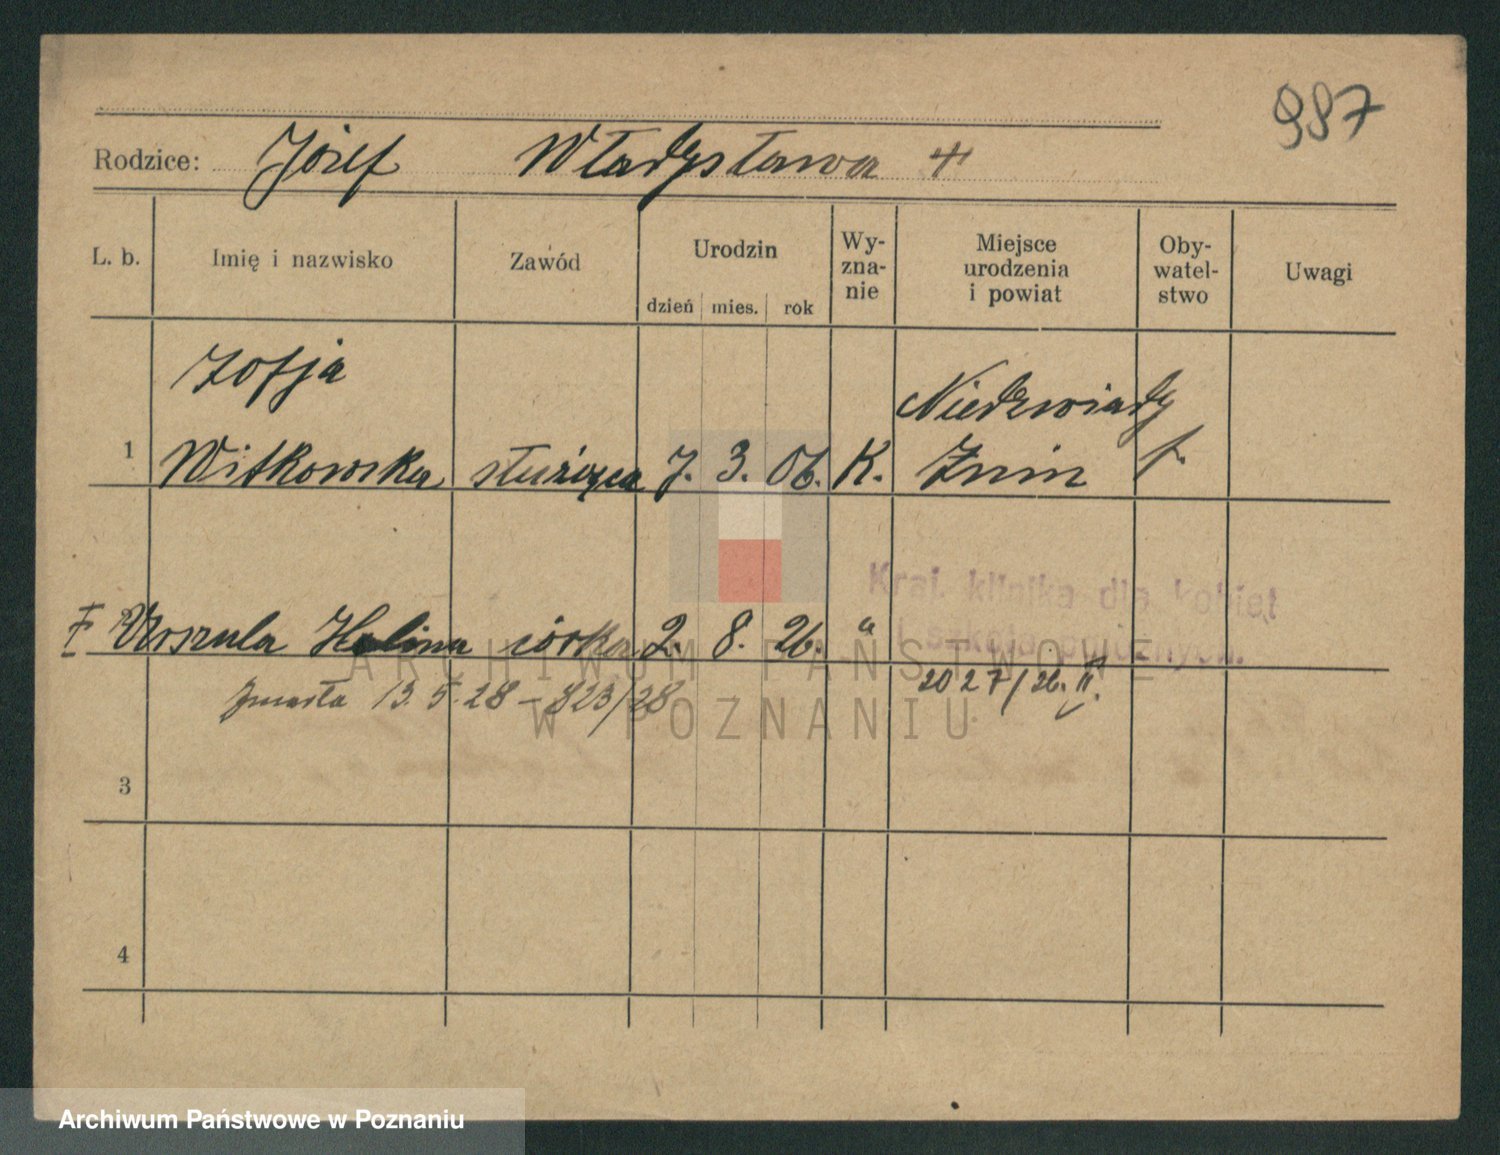 987
Rodzice: Józef Władysława
L. b. Imię i nazwisko Zawód Urodzin Wy-zna-nie Miejsce urodzenia i powiat Oby-watel-stwo Uwagi
dzień mies. rok
Zofja Niedzwiady
1 Witkowska służąca 7. 3. 06. K. Znin
Kraj. klinika dla kobiet
i szkoła położnych.
Urszula Halina córka 2. 8. 26. "
2027/26. II.
zmarła 13.5.28 – 823/28
3
4
ARCHIWUM PAŃSTWOWE
W POZNANIU
Archiwum Państwowe w Poznaniu